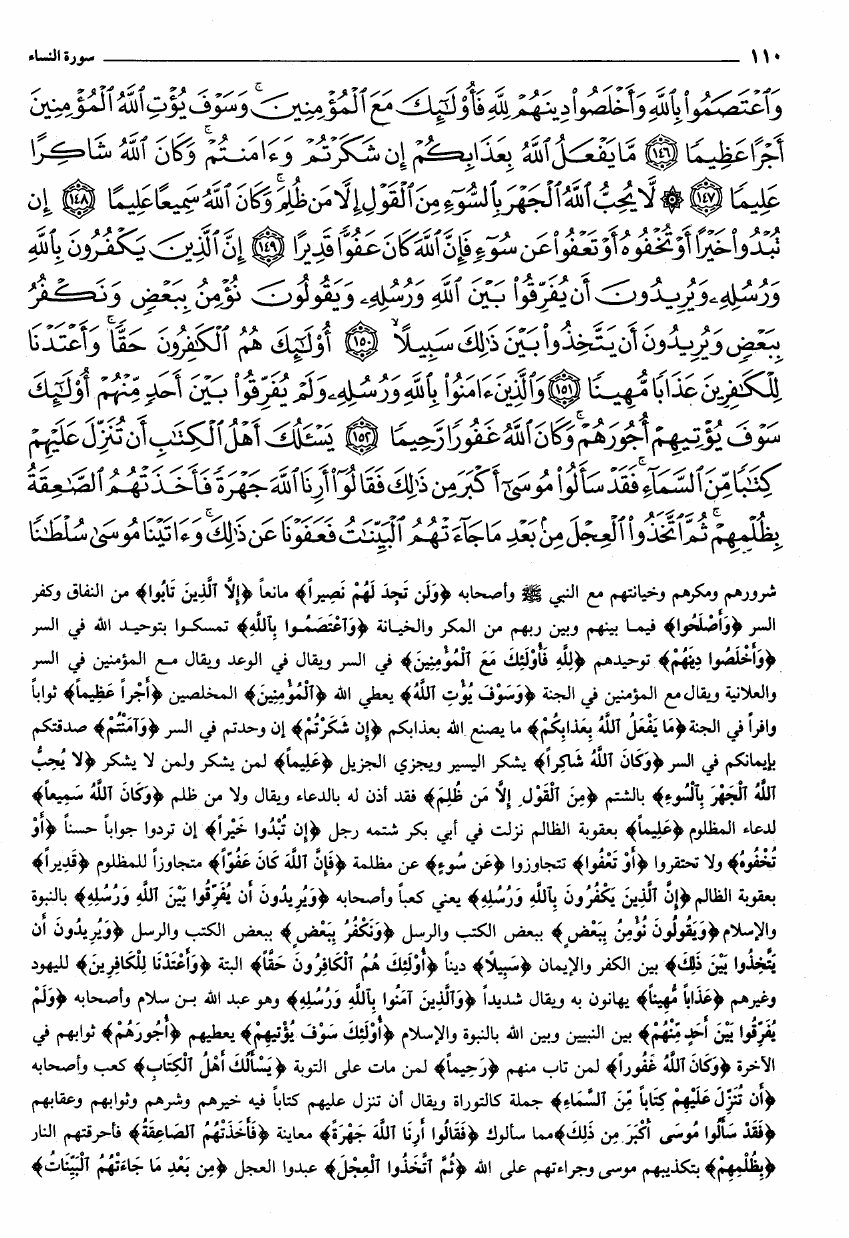 ١١٠ سورة النساء
وَٱعْتَصَمُوا۟ بِٱللَّهِ وَأَخْلَصُوا۟ دِينَهُمْ لِلَّهِ فَأُو۟لَٰٓئِكَ مَعَ ٱلْمُؤْمِنِينَ ۖ وَسَوْفَ يُؤْتِ ٱللَّهُ ٱلْمُؤْمِنِينَ
أَجْرًا عَظِيمًا ﴿١٤٦﴾ مَّا يَفْعَلُ ٱللَّهُ بِعَذَابِكُمْ إِن شَكَرْتُمْ وَءَامَنتُمْ ۚ وَكَانَ ٱللَّهُ شَاكِرًا
عَلِيمًا ﴿١٤٧﴾ ۞ لَّا يُحِبُّ ٱللَّهُ ٱلْجَهْرَ بِٱلسُّوٓءِ مِنَ ٱلْقَوْلِ إِلَّا مَن ظُلِمَ ۚ وَكَانَ ٱللَّهُ سَمِيعًا عَلِيمًا ﴿١٤٨﴾ إِن
تُبْدُوا۟ خَيْرًا أَوْ تُخْفُوهُ أَوْ تَعْفُوا۟ عَن سُوٓءٍ فَإِنَّ ٱللَّهَ كَانَ عَفُوًّا قَدِيرًا ﴿١٤٩﴾ إِنَّ ٱلَّذِينَ يَكْفُرُونَ بِٱللَّهِ
وَرُسُلِهِۦ وَيُرِيدُونَ أَن يُفَرِّقُوا۟ بَيْنَ ٱللَّهِ وَرُسُلِهِۦ وَيَقُولُونَ نُؤْمِنُ بِبَعْضٍ وَنَكْفُرُ
بِبَعْضٍ وَيُرِيدُونَ أَن يَتَّخِذُوا۟ بَيْنَ ذَٰلِكَ سَبِيلًا ﴿١٥٠﴾ أُو۟لَٰٓئِكَ هُمُ ٱلْكَٰفِرُونَ حَقًّا ۚ وَأَعْتَدْنَا
لِلْكَٰفِرِينَ عَذَابًا مُّهِينًا ﴿١٥١﴾ وَٱلَّذِينَ ءَامَنُوا۟ بِٱللَّهِ وَرُسُلِهِۦ وَلَمْ يُفَرِّقُوا۟ بَيْنَ أَحَدٍ مِّنْهُمْ أُو۟لَٰٓئِكَ
سَوْفَ يُؤْتِيهِمْ أُجُورَهُمْ ۗ وَكَانَ ٱللَّهُ غَفُورًا رَّحِيمًا ﴿١٥٢﴾ يَسْـَٔلُكَ أَهْلُ ٱلْكِتَٰبِ أَن تُنَزِّلَ عَلَيْهِمْ
كِتَٰبًا مِّنَ ٱلسَّمَآءِ ۚ فَقَدْ سَأَلُوا۟ مُوسَىٰٓ أَكْبَرَ مِن ذَٰلِكَ فَقَالُوٓا۟ أَرِنَا ٱللَّهَ جَهْرَةً فَأَخَذَتْهُمُ ٱلصَّٰعِقَةُ
بِظُلْمِهِمْ ۚ ثُمَّ ٱتَّخَذُوا۟ ٱلْعِجْلَ مِنۢ بَعْدِ مَا جَآءَتْهُمُ ٱلْبَيِّنَٰتُ فَعَفَوْنَا عَن ذَٰلِكَ ۚ وَءَاتَيْنَا مُوسَىٰ سُلْطَٰنًا
شرورهم ومكرهم وخيانتهم مع النبي ﷺ وأصحابه ﴿وَلَن تَجِدَ لَهُمْ نَصِيراً﴾ مانعاً ﴿إِلَّا ٱلَّذِينَ تَابُوا﴾ من النفاق وكفر
السر ﴿وَأَصْلَحُوا﴾ فيما بينهم وبين ربهم من المكر والخيانة ﴿وَٱعْتَصَمُوا بِٱللَّهِ﴾ تمسكوا بتوحيد الله في السر
﴿وَأَخْلَصُوا دِينَهُمْ﴾ توحيدهم ﴿لِلَّهِ فَأُوْلَئِكَ مَعَ ٱلْمُؤْمِنِينَ﴾ في السر ويقال في الوعد ويقال مع المؤمنين في السر
والعلانية ويقال مع المؤمنين في الجنة ﴿وَسَوْفَ يُؤْتِ ٱللَّهُ﴾ يعطي الله ﴿ٱلْمُؤْمِنِينَ﴾ المخلصين ﴿أَجْراً عَظِيماً﴾ ثواباً
وافراً في الجنة ﴿مَا يَفْعَلُ ٱللَّهُ بِعَذابِكُمْ﴾ ما يصنع الله بعذابكم ﴿إِن شَكَرْتُمْ﴾ إن وحدتم في السر ﴿وَآمَنْتُمْ﴾ صدقتكم
بإيمانكم في السر ﴿وَكَانَ ٱللَّهُ شَاكِراً﴾ يشكر اليسير ويجزي الجزيل ﴿عَلِيماً﴾ لمن يشكر ولمن لا يشكر ﴿لا يُحِبُّ
ٱللَّهُ ٱلْجَهْرَ بِٱلسُّوءِ﴾ بالشتم ﴿مِنَ ٱلْقَوْلِ إِلَّا مَن ظُلِمَ﴾ فقد أذن له بالدعاء ويقال ولا من ظلم ﴿وَكَانَ ٱللَّهُ سَمِيعاً﴾
لدعاء المظلوم ﴿عَلِيماً﴾ بعقوبة الظالم نزلت في أبي بكر شتمه رجل ﴿إِن تُبْدُوا خَيْراً﴾ إن تردوا جواباً حسناً ﴿أَوْ
تُخْفُوهُ﴾ ولا تحتقروا ﴿أَوْ تَعْفُوا﴾ تتجاوزوا ﴿عَن سُوءٍ﴾ عن مظلمة ﴿فَإِنَّ ٱللَّهَ كَانَ عَفُوّاً﴾ متجاوزاً للمظلوم ﴿قَدِيراً﴾
بعقوبة الظالم ﴿إِنَّ ٱلَّذِينَ يَكْفُرُونَ بِٱللَّهِ وَرُسُلِهِ﴾ يعني كعباً وأصحابه ﴿وَيُرِيدُونَ أَن يُفَرِّقُوا بَيْنَ ٱللَّهِ وَرُسُلِهِ﴾ بالنبوة
والإسلام ﴿وَيَقُولُونَ نُؤْمِنُ بِبَعْضٍ﴾ ببعض الكتب والرسل ﴿وَنَكْفُرُ بِبَعْضٍ﴾ ببعض الكتب والرسل ﴿وَيُرِيدُونَ أَن
يَتَّخِذُوا بَيْنَ ذَلِكَ﴾ بين الكفر والإيمان ﴿سَبِيلاً﴾ ديناً ﴿أُوْلَئِكَ هُمُ ٱلْكَافِرُونَ حَقّاً﴾ البتة ﴿وَأَعْتَدْنَا لِلْكَافِرِينَ﴾ لليهود
وغيرهم ﴿عَذَاباً مُّهِيناً﴾ يهانون به ويقال شديداً ﴿وَٱلَّذِينَ آمَنُوا بِٱللَّهِ وَرُسُلِهِ﴾ وهو عبد الله بن سلام وأصحابه ﴿وَلَمْ
يُفَرِّقُوا بَيْنَ أَحَدٍ مِنْهُمْ﴾ بين النبيين وبين الله بالنبوة والإسلام ﴿أُوْلَئِكَ سَوْفَ يُؤْتِيهِمْ﴾ يعطيهم ﴿أُجُورَهُمْ﴾ ثوابهم في
الآخرة ﴿وَكَانَ ٱللَّهُ غَفُوراً﴾ لمن تاب منهم ﴿رَحِيماً﴾ لمن مات على التوبة ﴿يَسْأَلُكَ أَهْلُ ٱلْكِتَابِ﴾ كعب وأصحابه
﴿أَن تُنَزِّلَ عَلَيْهِمْ كِتَاباً مِّنَ ٱلسَّمَاءِ﴾ جملة كالتوراة ويقال أن تنزل عليهم كتاباً فيه خيرهم وشرهم وثوابهم وعقابهم
﴿فَقَدْ سَأَلُوا مُوسَى أَكْبَرَ مِن ذَلِكَ﴾ مما سألوك ﴿فَقَالُوا أَرِنَا ٱللَّهَ جَهْرَةً﴾ معاينة ﴿فَأَخَذَتْهُمُ ٱلصَّاعِقَةُ﴾ فأحرقتهم النار
﴿بِظُلْمِهِمْ﴾ بتكذيبهم موسى وجراءتهم على الله ﴿ثُمَّ ٱتَّخَذُوا ٱلْعِجْلَ﴾ عبدوا العجل ﴿مِن بَعْدِ مَا جَاءَتْهُمُ ٱلْبَيِّنَاتُ﴾